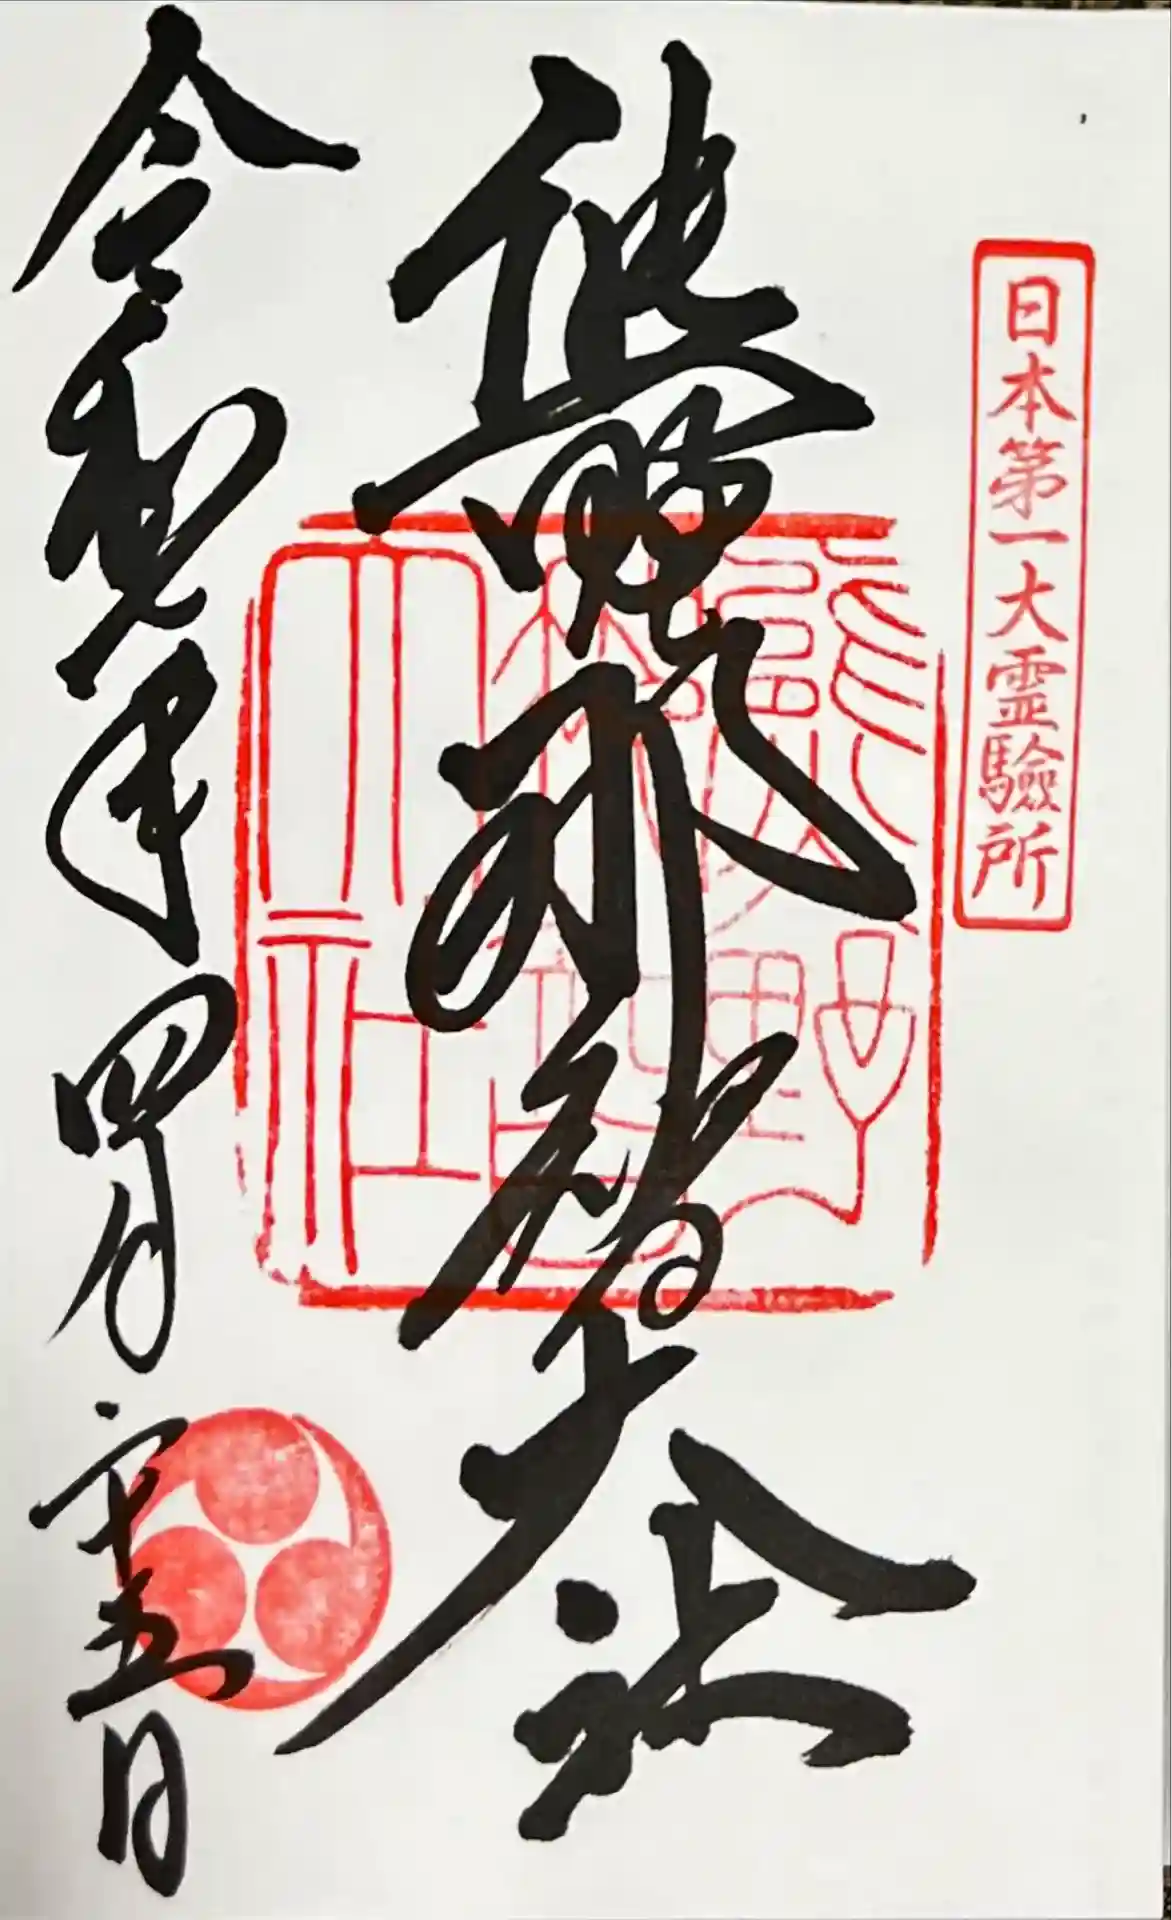 日本第一大霊驗所
熊野那智大社
熊野
那智
大社
令和年四月二十五日